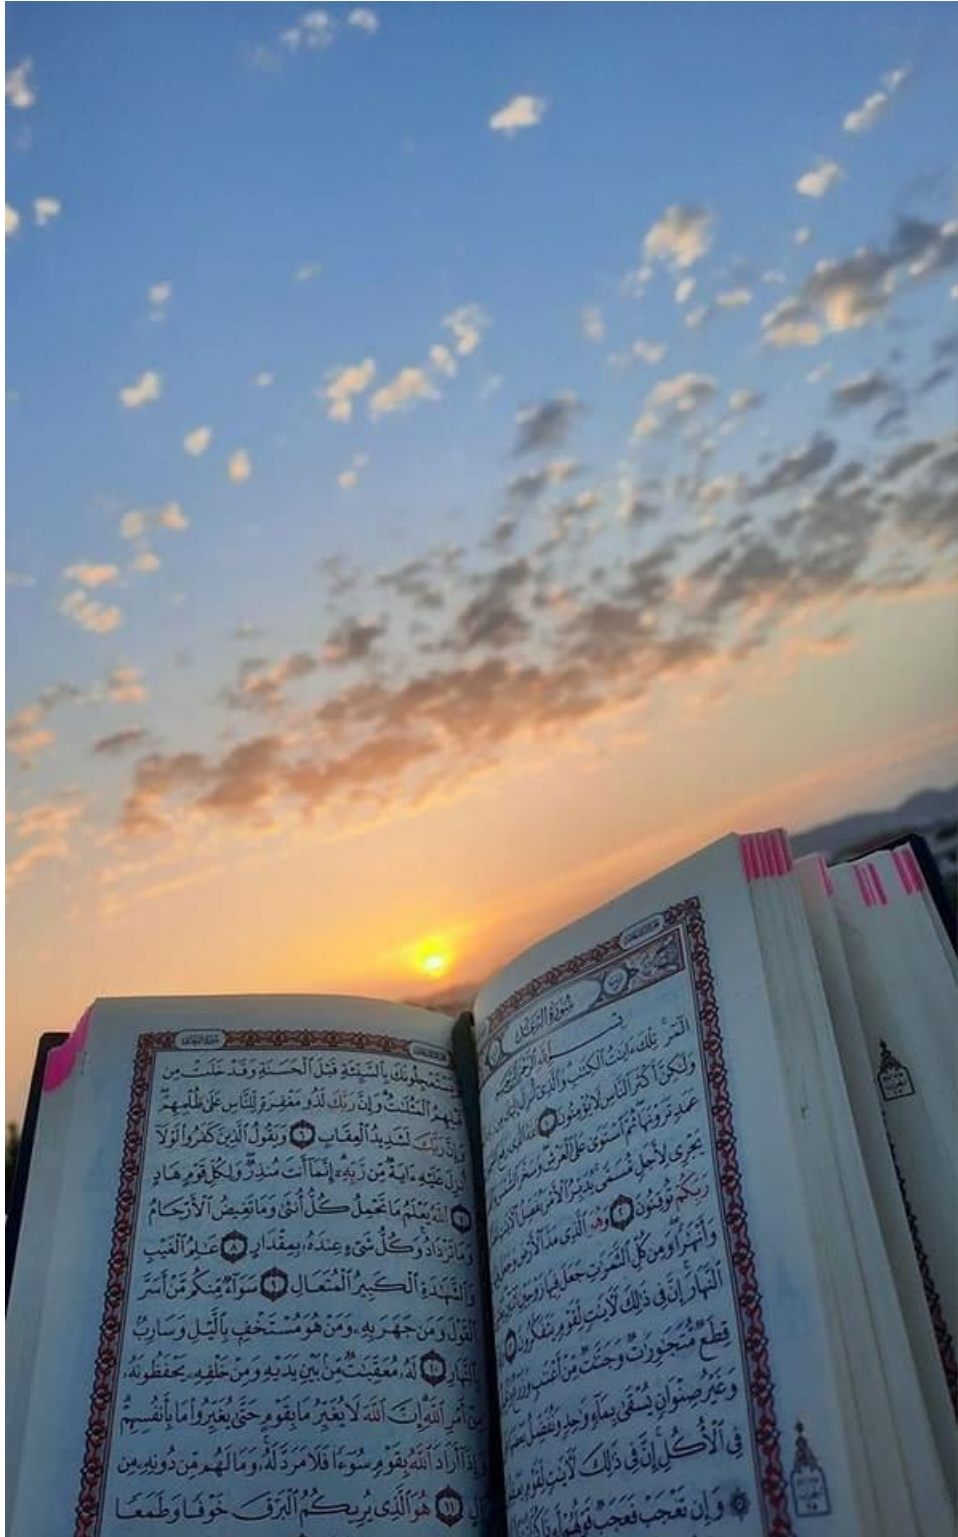 سُورَةُ الرَّعْدِ
بِسْمِ اللَّهِ الرَّحْمَٰنِ الرَّحِيمِ
الٓمٓر ۚ تِلْكَ ءَايَٰتُ الْكِتَٰبِ وَالَّذِىٓ أُنزِلَ
وَلَٰكِنَّ أَكْثَرَ النَّاسِ لَا يُؤْمِنُونَ ١ اللَّهُ الَّذِى رَفَعَ
عَمَدٍ تَرَوْنَهَا ثُمَّ اسْتَوَىٰ عَلَى الْعَرْشِ وَسَخَّرَ الشَّمْسَ
يَجْرِى لِأَجَلٍ مُّسَمًّى يُدَبِّرُ الْأَمْرَ يُفَصِّلُ الْءَايَٰتِ
رَبِّكُمْ تُوقِنُونَ ٢ وَهُوَ الَّذِى مَدَّ الْأَرْضَ وَجَعَلَ
وَأَنْهَٰرًا وَمِن كُلِّ الثَّمَرَٰتِ جَعَلَ فِيهَا زَوْجَيْنِ اثْنَيْنِ
النَّهَارَ إِنَّ فِى ذَٰلِكَ لَءَايَٰتٍ لِّقَوْمٍ يَتَفَكَّرُونَ ٣
قِطَعٌ مُّتَجَٰوِرَٰتٌ وَجَنَّٰتٌ مِّنْ أَعْنَٰبٍ وَزَرْعٌ
وَغَيْرُ صِنْوَانٍ يُسْقَىٰ بِمَآءٍ وَٰحِدٍ وَنُفَضِّلُ بَعْضَهَا
فِى الْأُكُلِ إِنَّ فِى ذَٰلِكَ لَءَايَٰتٍ لِّقَوْمٍ
وَإِن تَعْجَبْ فَعَجَبٌ قَوْلُهُمْ أَءِذَا كُنَّا
وَيَسْتَعْجِلُونَكَ بِالسَّيِّئَةِ قَبْلَ الْحَسَنَةِ وَقَدْ خَلَتْ مِن
قَبْلِهِمُ الْمَثُلَٰتُ وَإِنَّ رَبَّكَ لَذُو مَغْفِرَةٍ لِّلنَّاسِ عَلَىٰ ظُلْمِهِمْ
وَإِنَّ رَبَّكَ لَشَدِيدُ الْعِقَابِ ٦ وَيَقُولُ الَّذِينَ كَفَرُوا لَوْلَآ
أُنزِلَ عَلَيْهِ ءَايَةٌ مِّن رَّبِّهِۦٓ إِنَّمَآ أَنتَ مُنذِرٌ وَلِكُلِّ قَوْمٍ هَادٍ
٧ اللَّهُ يَعْلَمُ مَا تَحْمِلُ كُلُّ أُنثَىٰ وَمَا تَغِيضُ الْأَرْحَامُ
وَمَا تَزْدَادُ وَكُلُّ شَىْءٍ عِندَهُۥ بِمِقْدَارٍ ٨ عَٰلِمُ الْغَيْبِ
وَالشَّهَٰدَةِ الْكَبِيرُ الْمُتَعَالِ ٩ سَوَآءٌ مِّنكُم مَّنْ أَسَرَّ
الْقَوْلَ وَمَن جَهَرَ بِهِۦ وَمَنْ هُوَ مُسْتَخْفٍ بِالَّيْلِ وَسَارِبٌ
بِالنَّهَارِ ١٠ لَهُۥ مُعَقِّبَٰتٌ مِّنۢ بَيْنِ يَدَيْهِ وَمِنْ خَلْفِهِۦ يَحْفَظُونَهُۥ
مِنْ أَمْرِ اللَّهِ إِنَّ اللَّهَ لَا يُغَيِّرُ مَا بِقَوْمٍ حَتَّىٰ يُغَيِّرُوا مَا بِأَنفُسِهِمْ
وَإِذَآ أَرَادَ اللَّهُ بِقَوْمٍ سُوٓءًا فَلَا مَرَدَّ لَهُۥ وَمَا لَهُم مِّن دُونِهِۦ مِن
وَالٍ ١١ هُوَ الَّذِى يُرِيكُمُ الْبَرْقَ خَوْفًا وَطَمَعًا